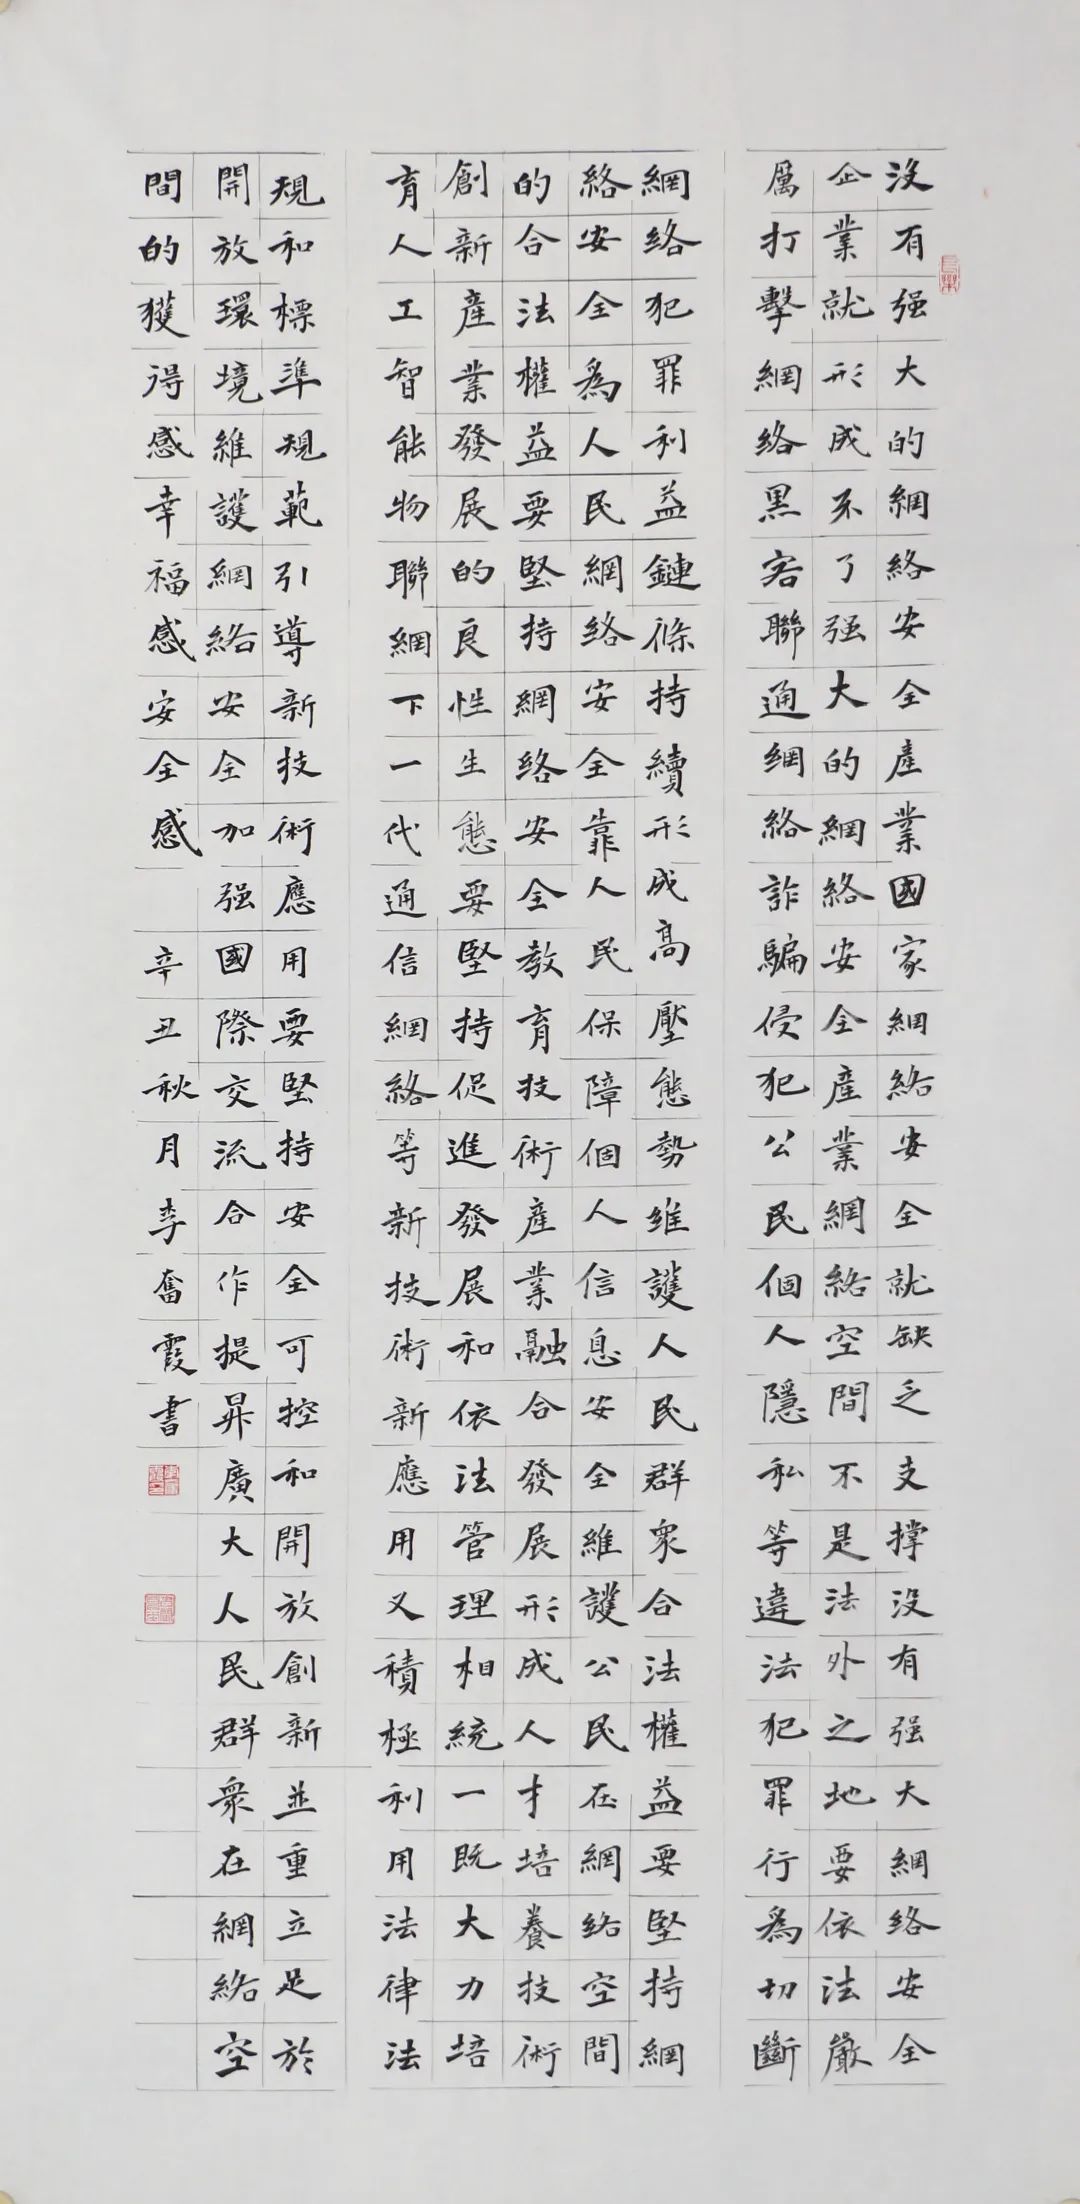 没有强大的網絡安全產業國家網絡安全就缺乏支撑没有强大網絡安全
企業就形成不了强大的網絡安全產業網絡空間不是法外之地要依法嚴
厲打擊網絡黑客聯通網絡詐騙侵犯公民個人隱私等違法犯罪行為切斷
網絡犯罪利益鏈條持續形成高壓態勢維護人民群衆合法權益要堅持網
絡安全為人民網絡安全靠人民保障個人信息安全維護公民在網絡空間
的合法權益要堅持網絡安全教育技術產業融合發展形成人才培養技術
創新產業發展的良性生態要堅持促進發展和依法管理相統一既大力培
育人工智能物聯網下一代通信網絡等新技術新應用又積極利用法律法
規和標準規範引導新技術應用要堅持安全可控和開放創新並重立足於
開放環境維護網絡安全加强國際交流合作提昇廣大人民群衆在網絡空
間的獲得感幸福感安全感 辛丑秋月李奮霞書